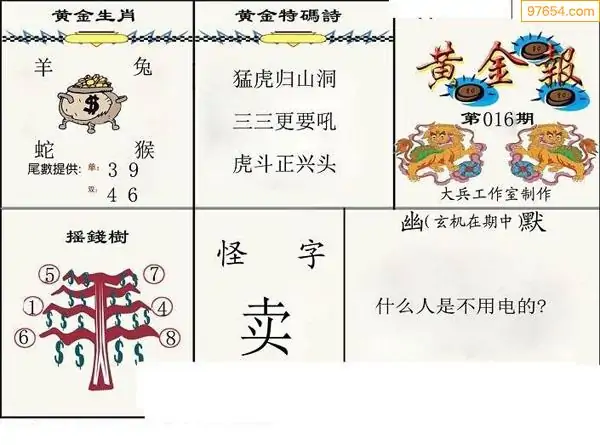 97654.com
黄金生肖
羊 兔
蛇 猴
尾數提供: 单: 3 9
双: 4 6
黄金特碼詩
猛虎归山洞
三三更要吼
虎斗正兴头
黄金報
第016期
大兵工作室制作
摇錢樹
⑤ ⑦
① ④
⑥ ⑧
怪 字
卖
幽(玄机在期中)默
什么人是不用电的?